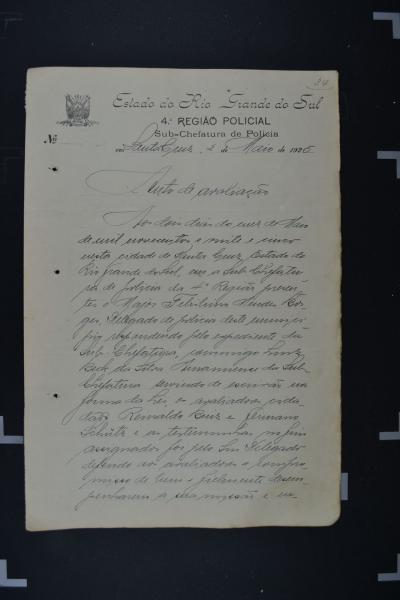 24
Estado do Rio Grande do Sul
4.ª REGIÃO POLICIAL
Sub-Chefatura de Policia
Nº
em Santa Cruz, 2 de Maio de 192
Auto de avaliação
Aos dous dias do mez de Maio
de mil novecentos e vinte e cinco
nesta cidade de Santa Cruz, Estado do
Rio Grande do Sul, na Sub-Chefatu-
ra de policia da 4ª Região presen-
te o Major Mendes
Delegado de policia deste munici-
pio respondendo pelo expediente da
Sub-Chefatura, commigo Luiz
da Silva Amanuense da Sub-
Chefatura servindo de escrivão na
forma da lei, os avaliadores cida-
dãos Reinaldo e Germano
Schütz e as testemunhas no fim
assignadas foi pelo Snr Delegado
deferido aos avaliadores o compro-
misso de bem e fielmente desem-
penharem a sua missão e